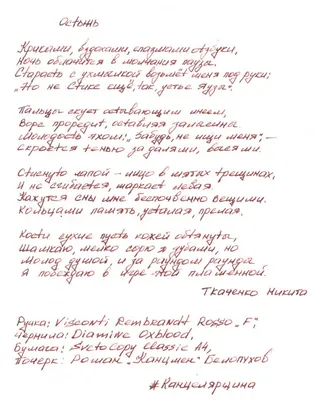 Остынь
Криками, вздохами, спазмами азбуки,
Ночь облачится в молчания паузы.
Старость с ухмылкой возьмёт меня под руки:
„Но не Стикс ещё, так, устье Яузы".
Пальцы скует остывающим инеем,
Взре проредит, оставляя залысины.
Молодость яхоли: „Забудь, не ищи меня", —
Скроется тенью за далями, весями.
Стиснуто лапой - лицо в мятых трещинах,
И не сгибается, шаркает левая.
Кажутся сны мне беспочвенно вещими.
Кольцами память, усталая, прелая.
Кости сухие пусть кожей обтянуты,
Шамкаю, мелко сорю я зубами, но
Молод душой, и за раундом раунды
Я побеждаю в игре той пламенной.
Ткаченко Никита
Ручка: Visconti Rembrandt Rosso „F",
Чернила: Diamine Oxblood,
Бумага: SvetoCopy Classic A4,
Почерк: Роман „Канцмен" Белопухов
#Канцелярщина